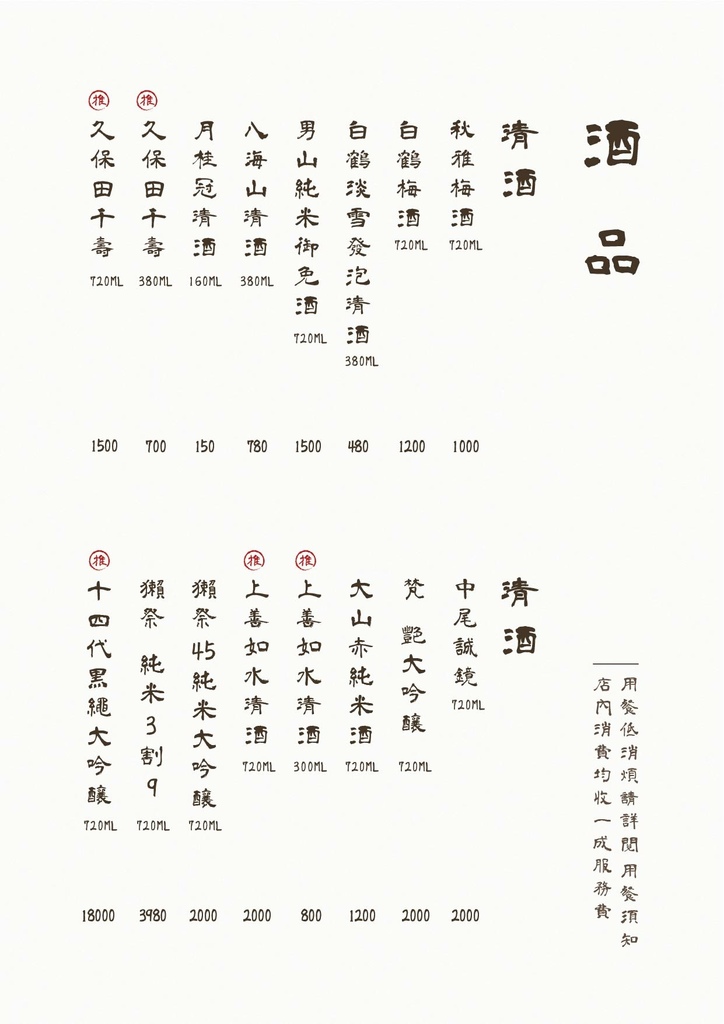 酒品
清酒
秋雅梅酒 720ML 1000
白鶴梅酒 720ML 1200
白鶴淡雪發泡清酒 380ML 480
男山純米御免酒 720ML 1500
八海山清酒 380ML 780
月桂冠清酒 160ML 150
推 久保田千壽 380ML 700
推 久保田千壽 720ML 1500
清酒
中尾誠鏡 720ML 2000
梵 艷大吟釀 720ML 2000
大山赤純米酒 720ML 1200
推 上善如水清酒 300ML 800
推 上善如水清酒 720ML 2000
獺祭45純米大吟釀 720ML 2000
獺祭 純米3割9 720ML 3980
推 十四代黑繩大吟釀 720ML 18000
用餐低消煩請詳閱用餐須知
店內消費均收一成服務費